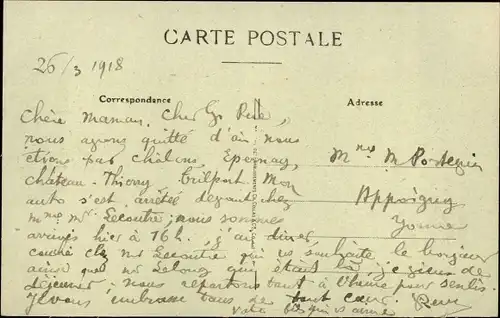 CARTE POSTALE
26/3 1918
Correspondance
Adresse
Chère Maman, Cher Gd Père,
nous avons quitté d'ai nous
étions par châlons, Epernay,
château-Thierry trilport Mon
auto s'est arrêtée devant chez
mme Mr Lecoutre; nous sommes
arrivés hier à 16h. j'ai diner
couché chez mr Lecoutre qui vs souhaite le bonjour
ainsi que mr Lelong qui était là, je viens de
déjeuner. nous repartons tout à l'heure pour senlis.
Je vous embrasse tous de tout cœur. René
qui vs aime
Mme M
Appoigny
Yonne